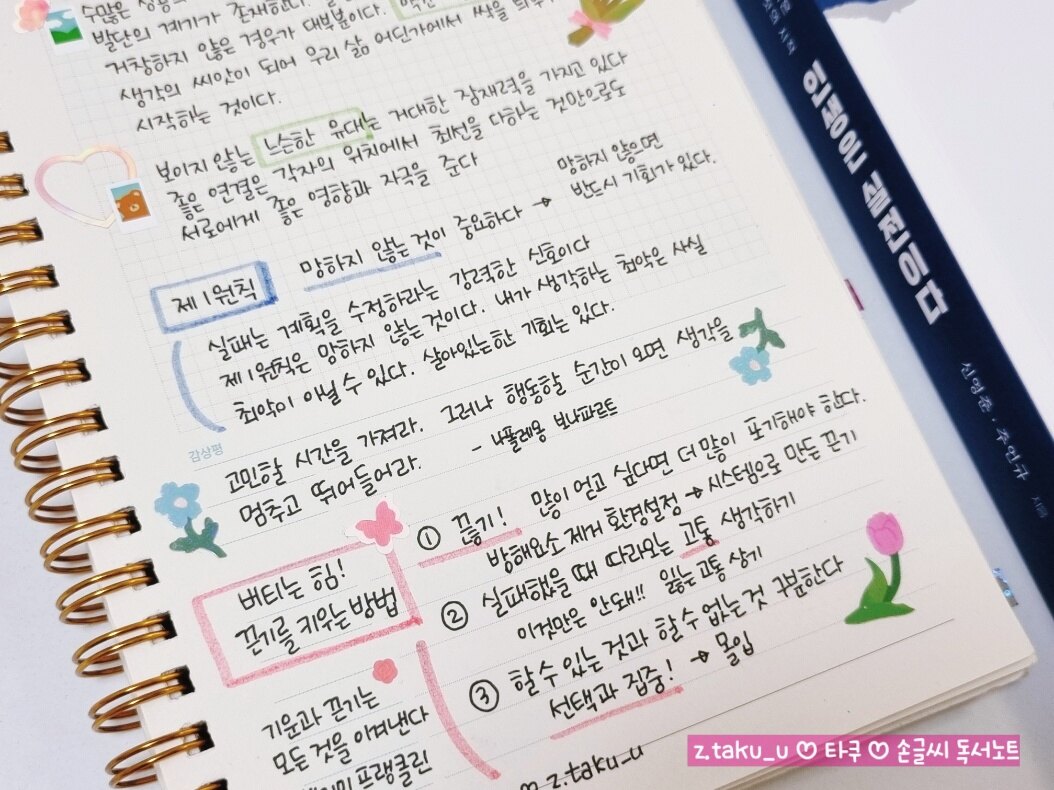 발단의 계기가 존재한다.
거창하지 않은 경우가 대부분이다.
생각의 씨앗이 되어 우리 삶 어딘가에서 싹을
시작하는 것이다.
보이지 않는 느슨한 유대는 거대한 잠재력을 가지고 있다
좋은 연결은 각자의 위치에서 최선을 다하는 것만으로도
서로에게 좋은 영향과 자극을 준다
제1원칙
망하지 않는 것이 중요하다 →
망하지 않으면
반드시 기회가 있다.
실패는 계획을 수정하라는 강력한 신호이다
제1원칙은 망하지 않는 것이다. 내가 생각하는 최악은 사실
최악이 아닐 수 있다. 살아있는한 기회는 있다.
감상평
고민할 시간을 가져라. 그러나 행동할 순간이 오면 생각을
멈추고 뛰어들어라.
- 나폴레옹 보나파르트
버티는 힘!
끈기를 키우는 방법
① 끊기! 많이 얻고 싶다면 더 많이 포기해야 한다.
방해요소 제거 환경설정 → 시스템으로 만든 끈기
② 실패했을 때 따라오는 고통 생각하기
이것만은 안돼!! 잃는 고통 상기
③ 할 수 있는 것과 할 수 없는 것 구분한다
선택과 집중! → 몰입
기운과 끈기는
모든 것을 이겨낸다
프랭클린
♡ z.taku_u
인생은 실전이다
신영준 · 주언규
지음
z.taku_u ♡ 타쿠 ♡ 손글씨 독서노트